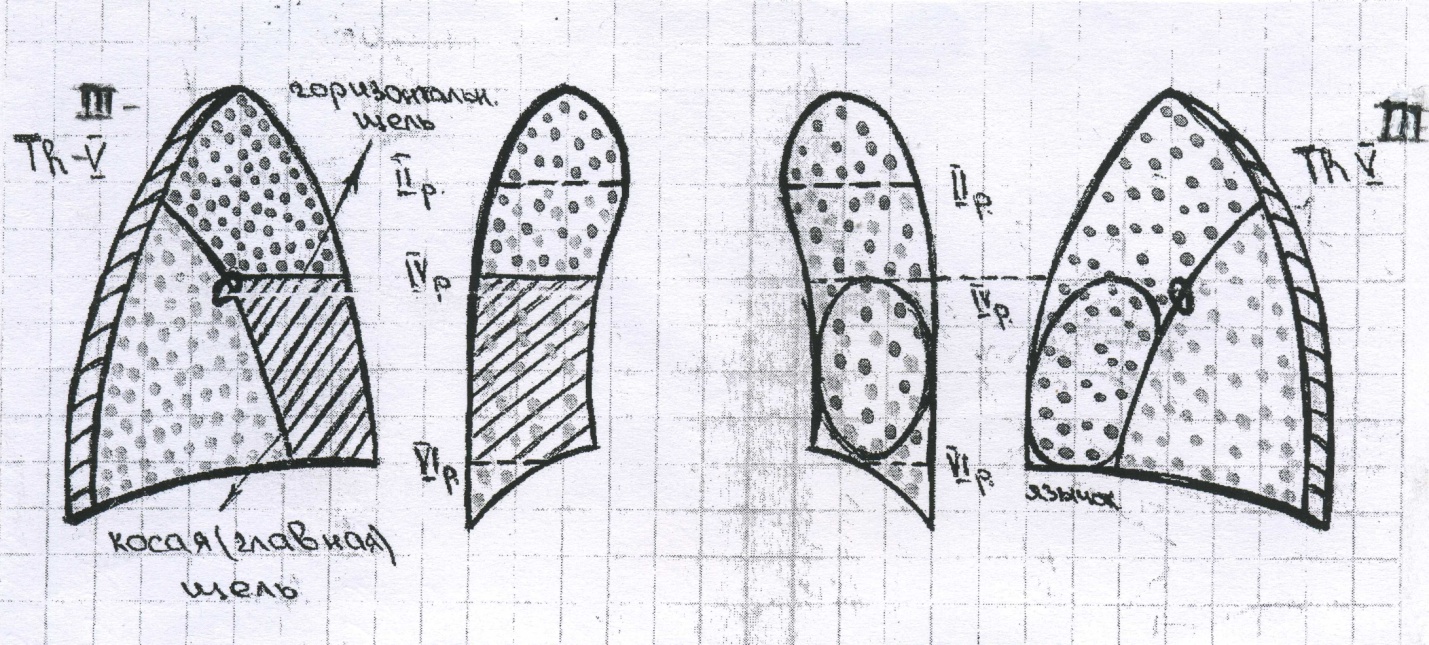 III -
Th - V
горизонтальн.
щель
II р.
IV р.
VI р.
косая (главная)
щель
II р.
IV р.
VI р.
язычок
III
Th V